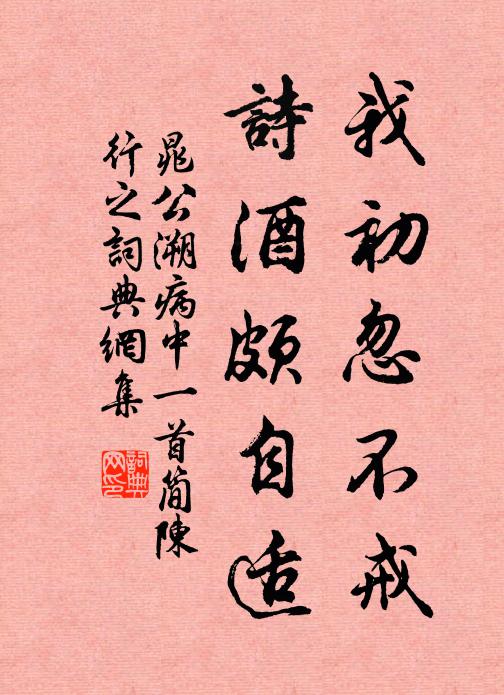 我初忽不戒
詩酒頗自适
晁公溯病中一首简陳
行之詞典網集
詞典
网印